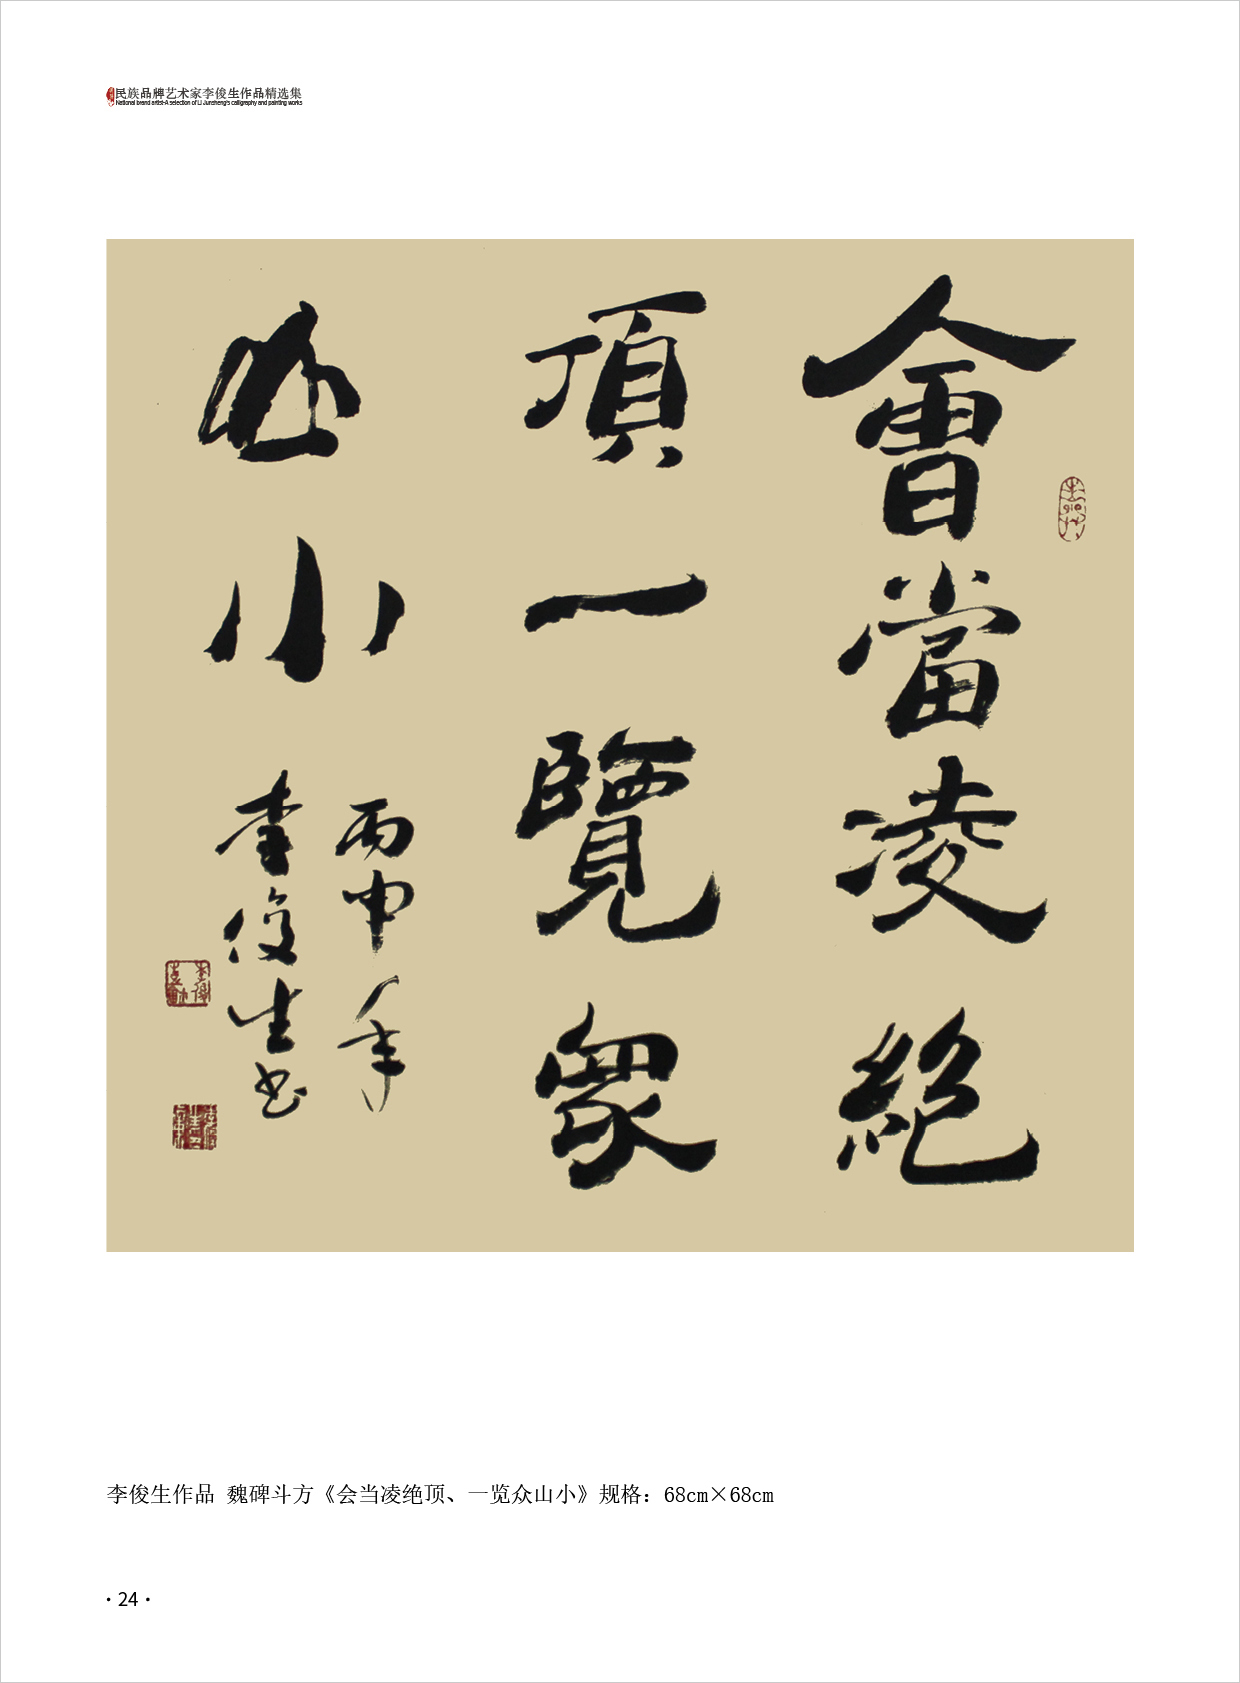 民族品牌艺术家李俊生作品精选集
National brand artist-A selection of Li Junsheng's calligraphy and painting works
會當凌絕
頂一覽眾
山小
丙申年
李俊生书
李俊生作品 魏碑斗方《会当凌绝顶、一览众山小》规格：68cm×68cm
·24·